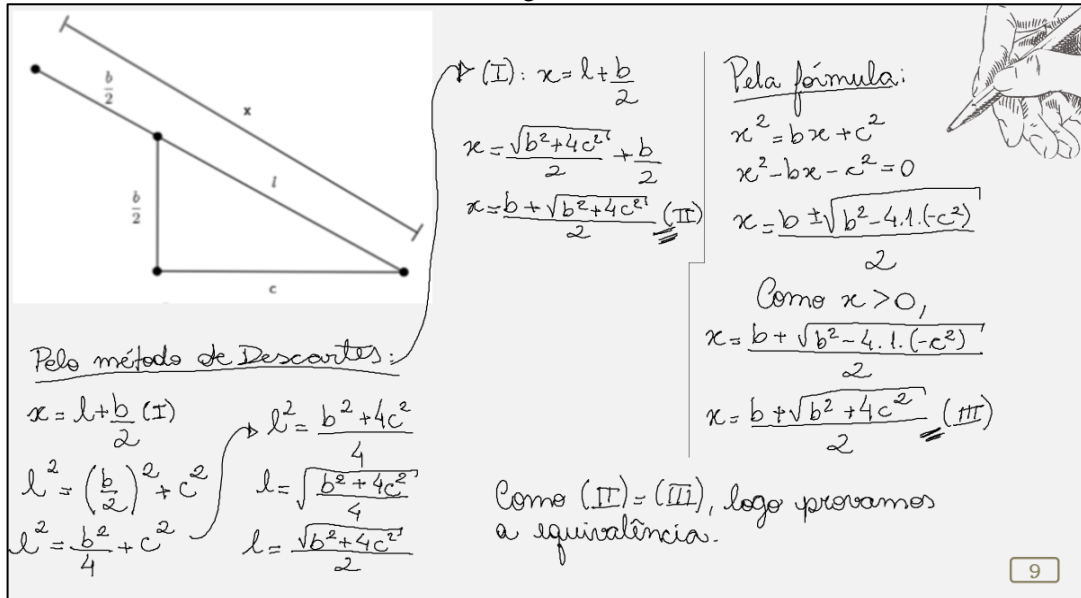 b/2
x
b/2
l
c
Pelo método de Descartes:
x = l + b/2 (I)
l² = (b/2)² + c²
l² = b²/4 + c²
l² = (b² + 4c²)/4
l = √((b² + 4c²)/4)
l = √(b² + 4c²)/2
(I): x = l + b/2
x = √(b² + 4c²)/2 + b/2
x = (b + √(b² + 4c²))/2 (II)
Pela fórmula:
x² = bx + c²
x² - bx - c² = 0
x = (b ± √(b² - 4.1.(-c²)))/2
Como x > 0,
x = (b + √(b² - 4.1.(-c²)))/2
x = (b + √(b² + 4c²))/2 (III)
Como (II) = (III), logo provamos
a equivalência.
9